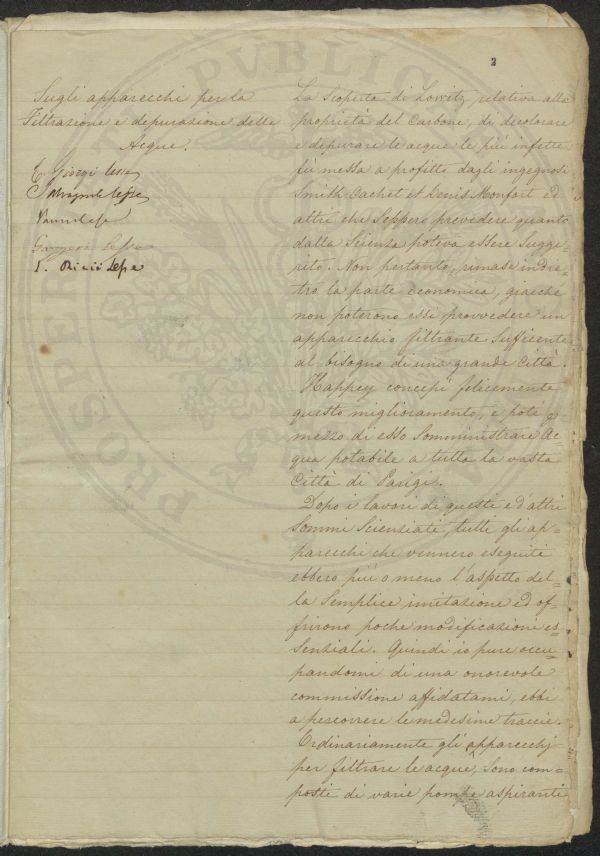 2
Sugli apparecchi per la
Filtrazione e depurazione delle
Acque.
C. Giorgi lesse
lesse
lesse
lesse
lesse
La Scoperta di Lowitz, relativa alla
proprietà del Carbone, di decolorare
e depurare le acque le più infette
fù messa a profitto dagli ingegnosi
Smith Cachet et Denis Monfort ed
altri che Seppero prevedere quanto
dalla Scienza poteva essere Sugge-
rito. Non pertanto, rimase indie-
tro la parte economica, giacchè
non poterono essi provvedere un
apparecchio filtrante Sufficente
al bisogno di una grande Città.
Happey concepì felicemente
questo miglioramento, e potè p.
mezzo di esso Somministrare Ac
qua potabile a tutta la vasta
Città di Parigi.
Dopo i lavori di questi ed altri
Sommi Scienziati, tutti gli ap-
parecchi che vennero eseguite
ebbero più o meno l'aspetto del-
la Semplice imitazione ed of-
frirono poche modificazioni es-
Senziali. Quindi io pure occu-
pandomi di una onorevole
commissione affidatami, ebbi
a percorrere le medesime traccie.
Ordinariamente gli apparecchj
per filtrare le acque, Sono com-
posti di varie pompe aspiranti
PVBLIC
PROSPERI